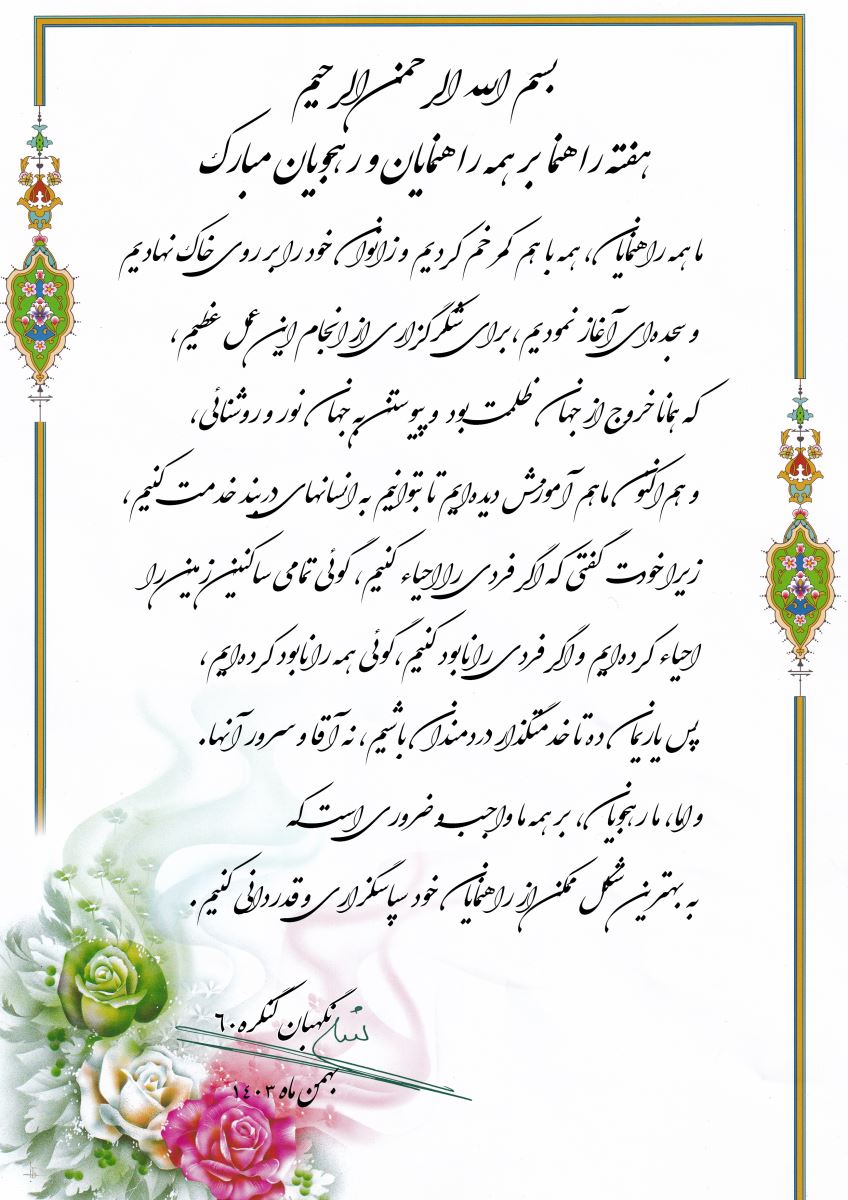 بسم الله الرحمن الرحیم
هفته راهنما بر همه راهنمایان و رهجویان مبارک
ما همه راهنمایان، همه با هم کمر خم کردیم و زانوان خود را بر روی خاک نهادیم
و سجده‌ای آغاز نمودیم، برای شکرگزاری از انجام این عمل عظیم،
که همانا خروج از جهان ظلمت بود و پیوستن به جهان نور و روشنائی،
و هم اکنون ما هم آموزش دیده‌ایم تا بتوانیم به انسانهای دربند خدمت کنیم،
زیرا خودت گفتی که اگر فردی را احیاء کنیم، گوئی تمامی ساکنین زمین را
احیاء کرده‌ایم و اگر فردی را نابود کنیم، گوئی همه را نابود کرده‌ایم،
پس یاریمان ده تا خدمتگذار دردمندان باشیم، نه آقا و سرور آنها.
و اما، ما رهجویان، بر همه ما واجب و ضروری است که
به بهترین شکل ممکن از راهنمایان خود سپاسگزاری و قدردانی کنیم.
نگهبان کنگره ٦٠
بهمن ماه ١٤٠٣